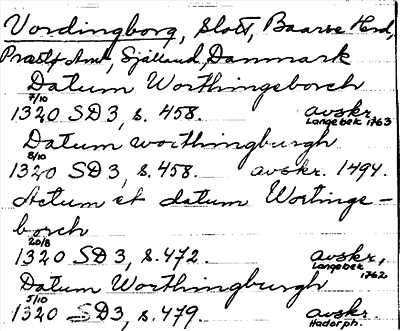 Vordingborg, Slott, Baarse Hrd,
Præstö Amt, Sjülland, Danmark
Datum Worthingeborch
7/10
1320 SD3, s. 458. avskr.
Langebek 1763
Datum worthingburgh
8/10
1320 SD3, s. 458. avskr. 1494.
Actum et datum Wortinge-
borch
20/8
1320 SD3, s. 472. avskr,
Langebek
1762
Datum Worthingburgh
5/10
1320 SD3, s. 479. avskr.
Hadorph.